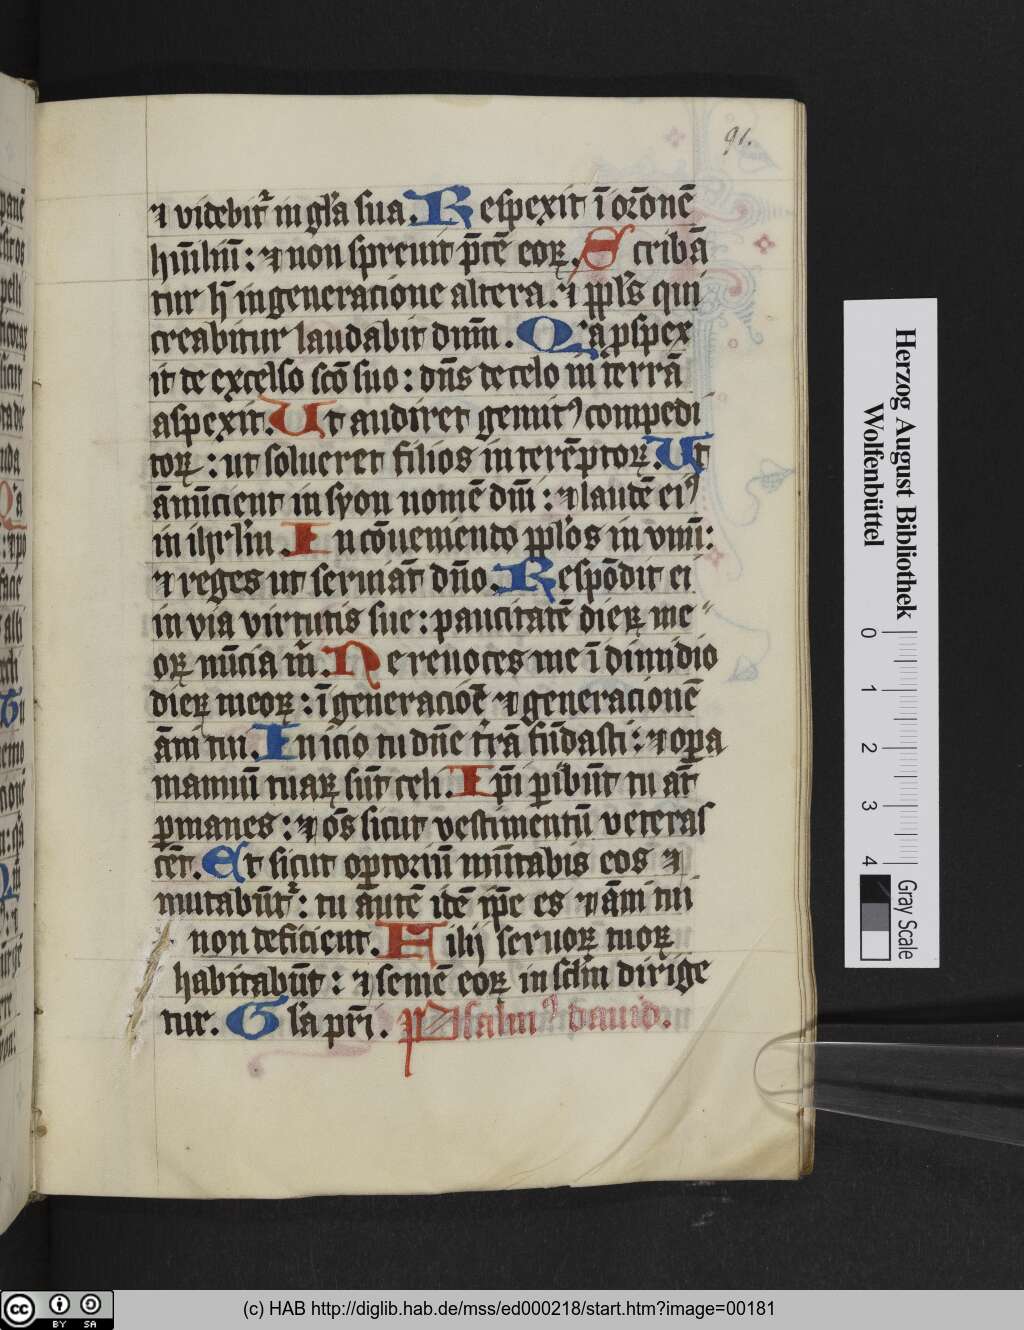 91.
⁊ videbit᷑ in gl̅a sua. Respexit i̅ or̅one̅
hu̅iliu̅: ⁊ non spreuit p̅ce̅ eoꝝ. Scriba̅
tur h̅ in generacione altera. ⁊ ppl̅s qui
creabitur laudabit dnm̅. Qͥa ꝓspex
it de excelso sc̅o suo: dn̅s de celo in terra̅
aspexit. Ut audiret gemitꝰ compedi
toꝝ: ut solueret filios intere̅ptoꝝ. Ut
a̅nu̅cient in syon nome̅ dn̅i: ⁊ laude̅ eiꝰ
in ihrl̅m. In co̅ueniendo ppl̅os in vnu̅:
⁊ reges ut seruia̅t dn̅o. Respo̅dit ei
in via virtutis sue: paucitate̅ dieꝝ me
oꝝ nu̅cia m̅. Ne reuoces me i̅ dimidio
dieꝝ meoꝝ: i̅ generacio̅e̅ ⁊ generacione̅
a̅ni tui. Inicio tu dn̅e t̅ra̅ fu̅dasti: ⁊ oꝑa
manuu̅ tuaꝝ su̅t celi. Ip̅i ꝑibu̅t tu at̅
ꝑmanes: ⁊ om̅s sicut vestimentu̅ veteras
ce̅t. Et sicut oꝑtoriu̅ mu̅tabis eos ⁊
mutabu̅t᷑: tu aute̅ ide̅ ip̅e es ⁊ a̅ni tui
non deficient. Filij seruoꝝ tuoꝝ
habitabu̅t: ⁊ seme̅ eoꝝ in sc̅lm dirige
tur. Gl̅a pr̅i. Psalmꝰ dauid.
Herzog August Bibliothek
Wolfenbüttel
0 1 2 3 4
Gray Scale
cc BY SA
(c) HAB http://diglib.hab.de/mss/ed000218/start.htm?image=00181